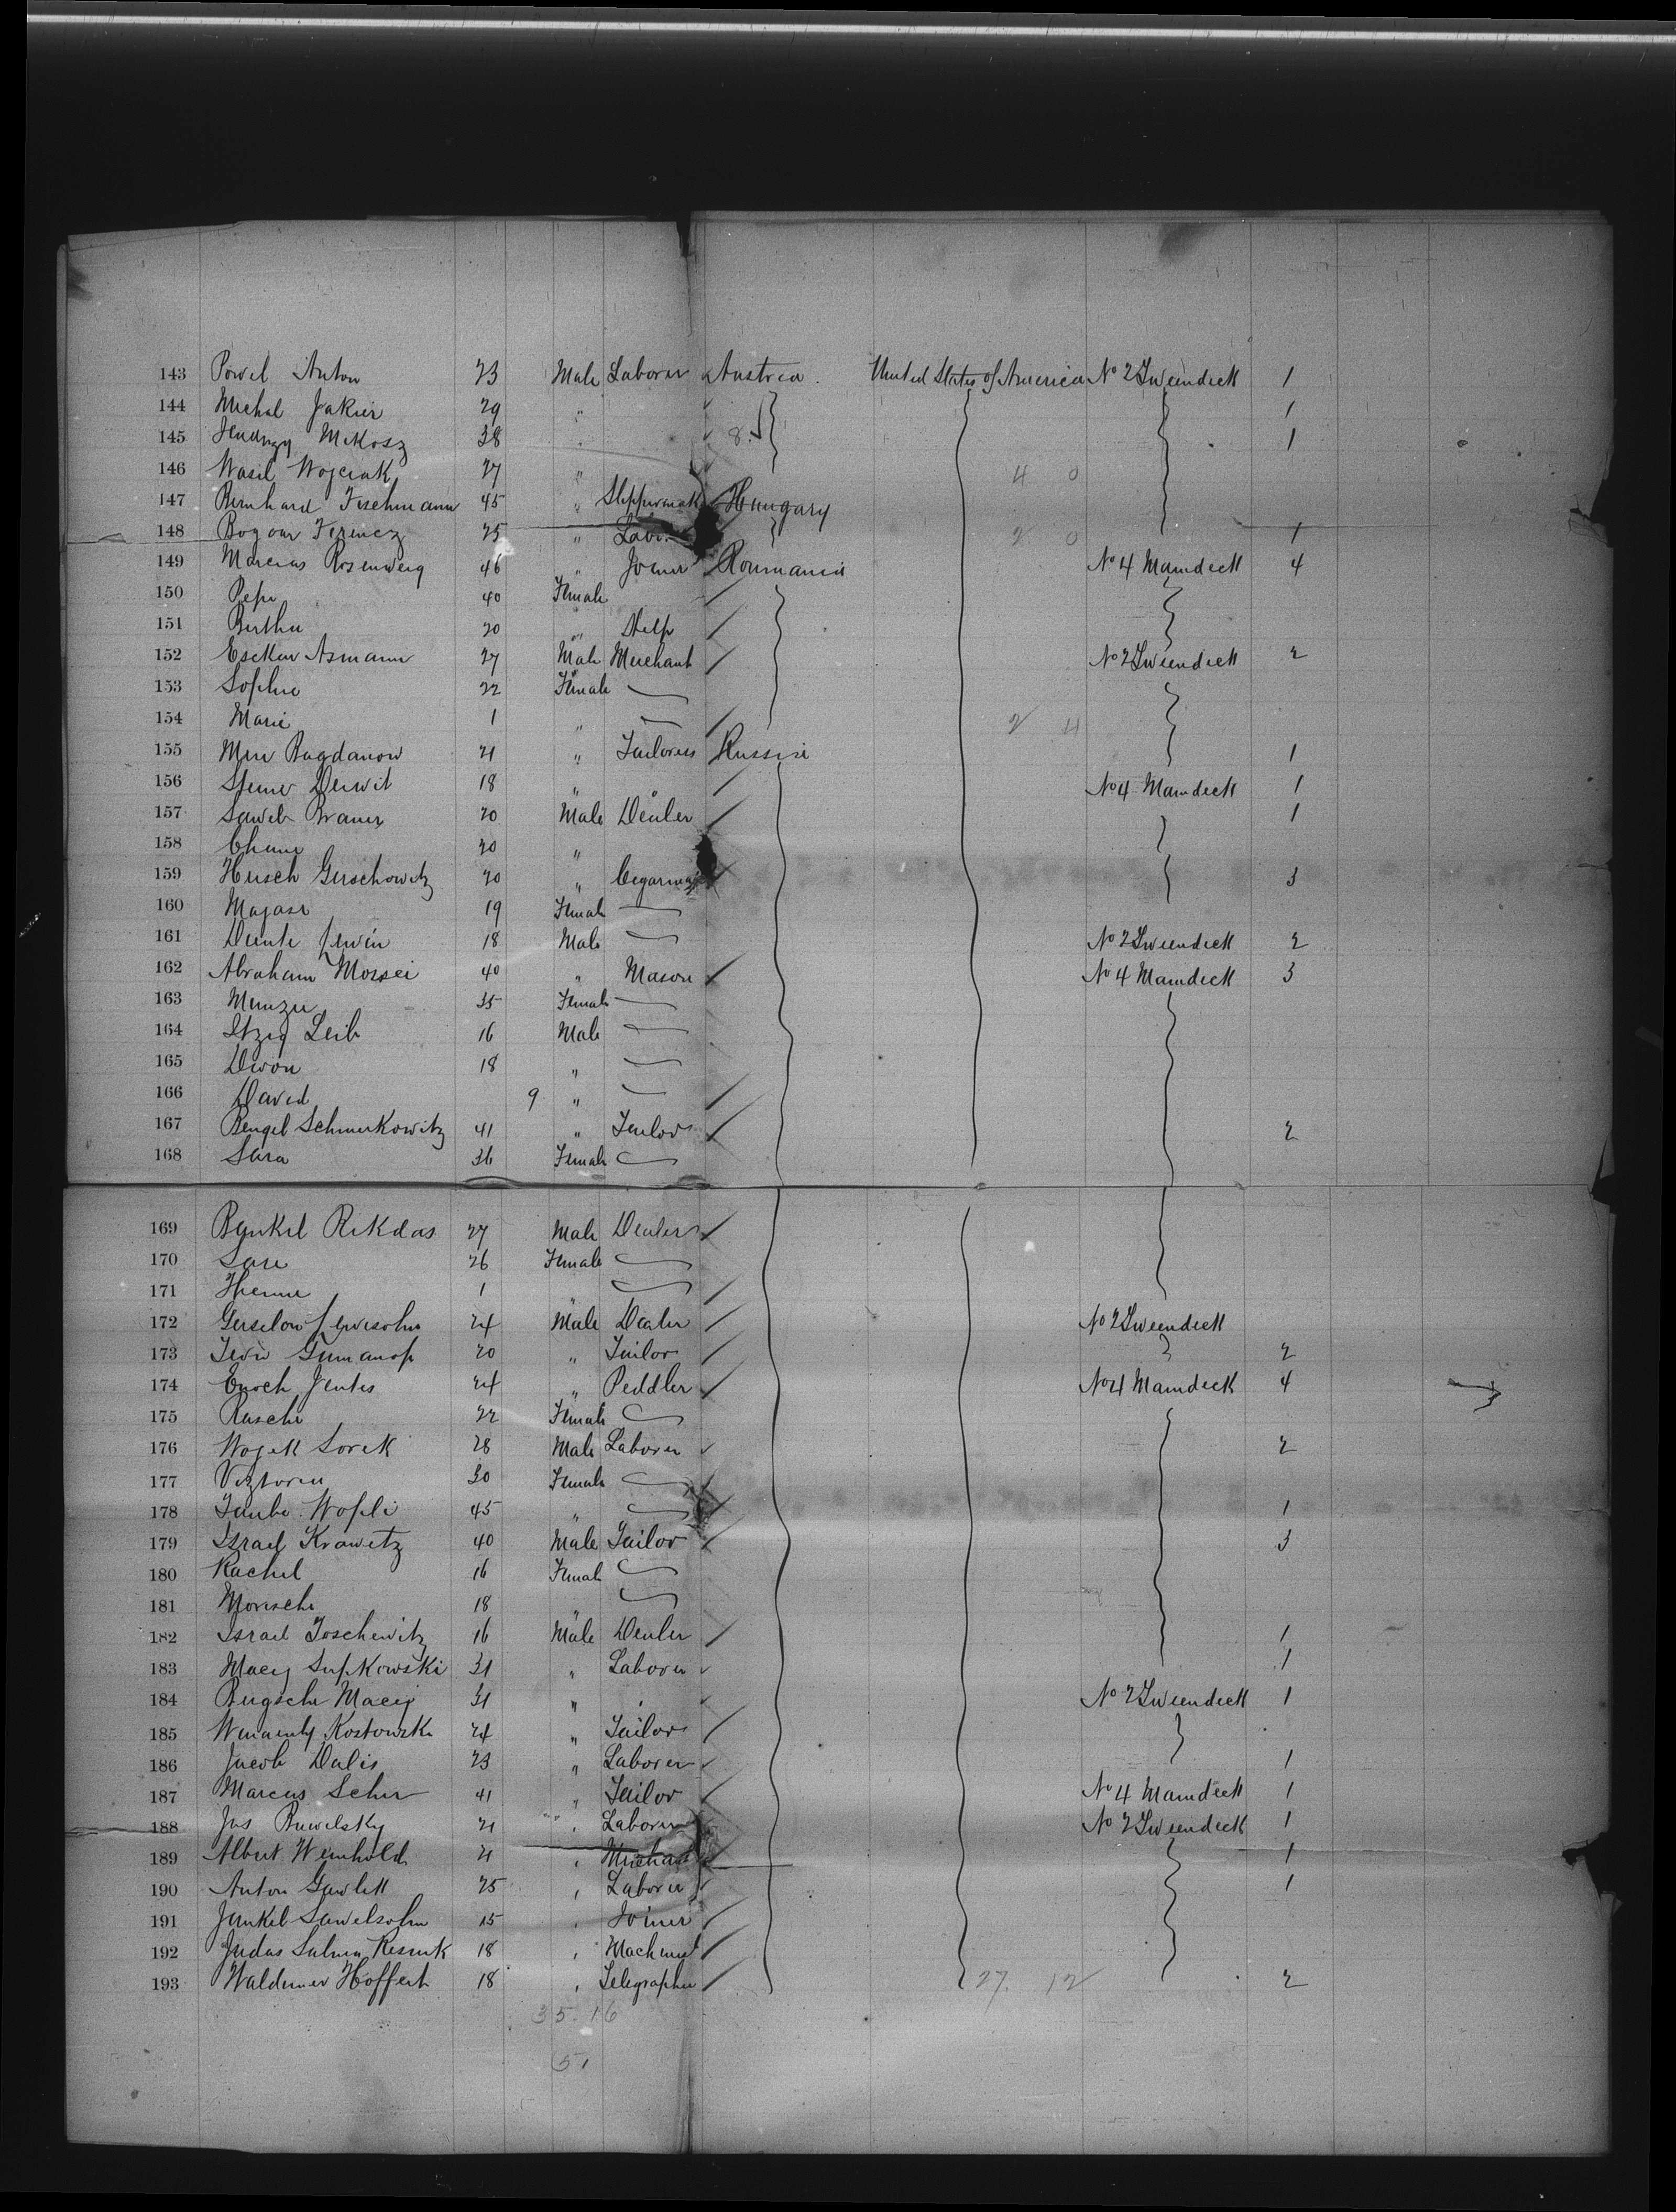 143 Powel Anton 23 Male Laborer Austria. United States of America No 2 Tweendeck 1
144 Michal Jakier 29 " 1
145 Mikosz 38 " 8. 1
146 Wasil Wojciak 27 " 4 0
147 Bernhard Fischmann 45 " Slippermak Hungary
148 Bogour Ferencz 25 " Labr. 2 0 1
149 Marcus Rosenweig 46 " Joiner Roumania No 4 Maindeck 4
150 Pepi 40 Female
151 Bertha 20 " Help
152 Esckew Asmann 27 Male Merchant No 2 Tweendeck 2
153 Sophie 22 Female
154 Marie 1 " 2 4
155 Bagdanow 21 " Tailoress Russia 1
156 18 " No 4 Maindeck 1
157 20 Male Dealer 1
158 20 "
159 Hirsch Gerschowitz 20 " Cigarmaj 3
160 Majasr 19 Female
161 18 Male No 2 Tweendeck 2
162 Abraham Mossei 40 " Mason No 4 Maindeck 3
163 35 Female
164 Itzig Leib 16 Male
165 Diwon 18 "
166 David 9 "
167 Bengel Schmerkowitz 41 " Tailor 2
168 Sara 36 Female
169 Bankel Rikdas 27 Male Dealer
170 Sare 26 Female
171 1 "
172 Gerselow Lewisohn 24 Male Dealer No 2 Tweendeck
173 20 " Tailor 2
174 Enoch Jentes 24 " Peddler No 4 Maindeck 4
175 Rasche 22 Female
176 Wojek Sorek 28 Male Laborer 2
177 Viztoria 30 Female
178 Taube 45 " 1
179 Israel Krawetz 40 Male Tailor 3
180 Rachel 16 Female
181 Morische 18 "
182 Israel Joschewitz 16 Male Dealer 1
183 Maciej Supkowski 31 " Laborer 1
184 Maciej 31 " " No 2 Tweendeck 1
185 Kostowski 24 " Tailor
186 Jacob Dalis 23 " Laborer 1
187 Marcus Scher 41 " Tailor No 4 Maindeck 1
188 Jas Ruwelsky 21 " Laborer No 2 Tweendeck 1
189 Albert Weinhold 21 " Merchant 1
190 Anton Gawlek 25 " Laborer 1
191 Jankel Sawelsohn 15 " Joiner
192 Judas Salmen Resnik 18 " Machinist
193 Waldemer Hoffert 18 " Telegrapher 27. 12 2
35 16
51